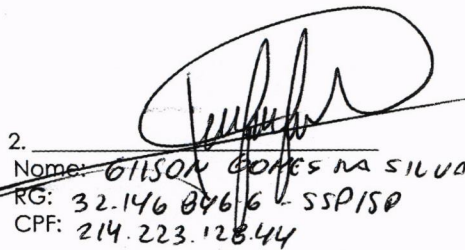 2.
Nome: GILSON GOMES DA SILVA
RG: 32.146.846-6 - SSP/SP
CPF: 214.223.128.44